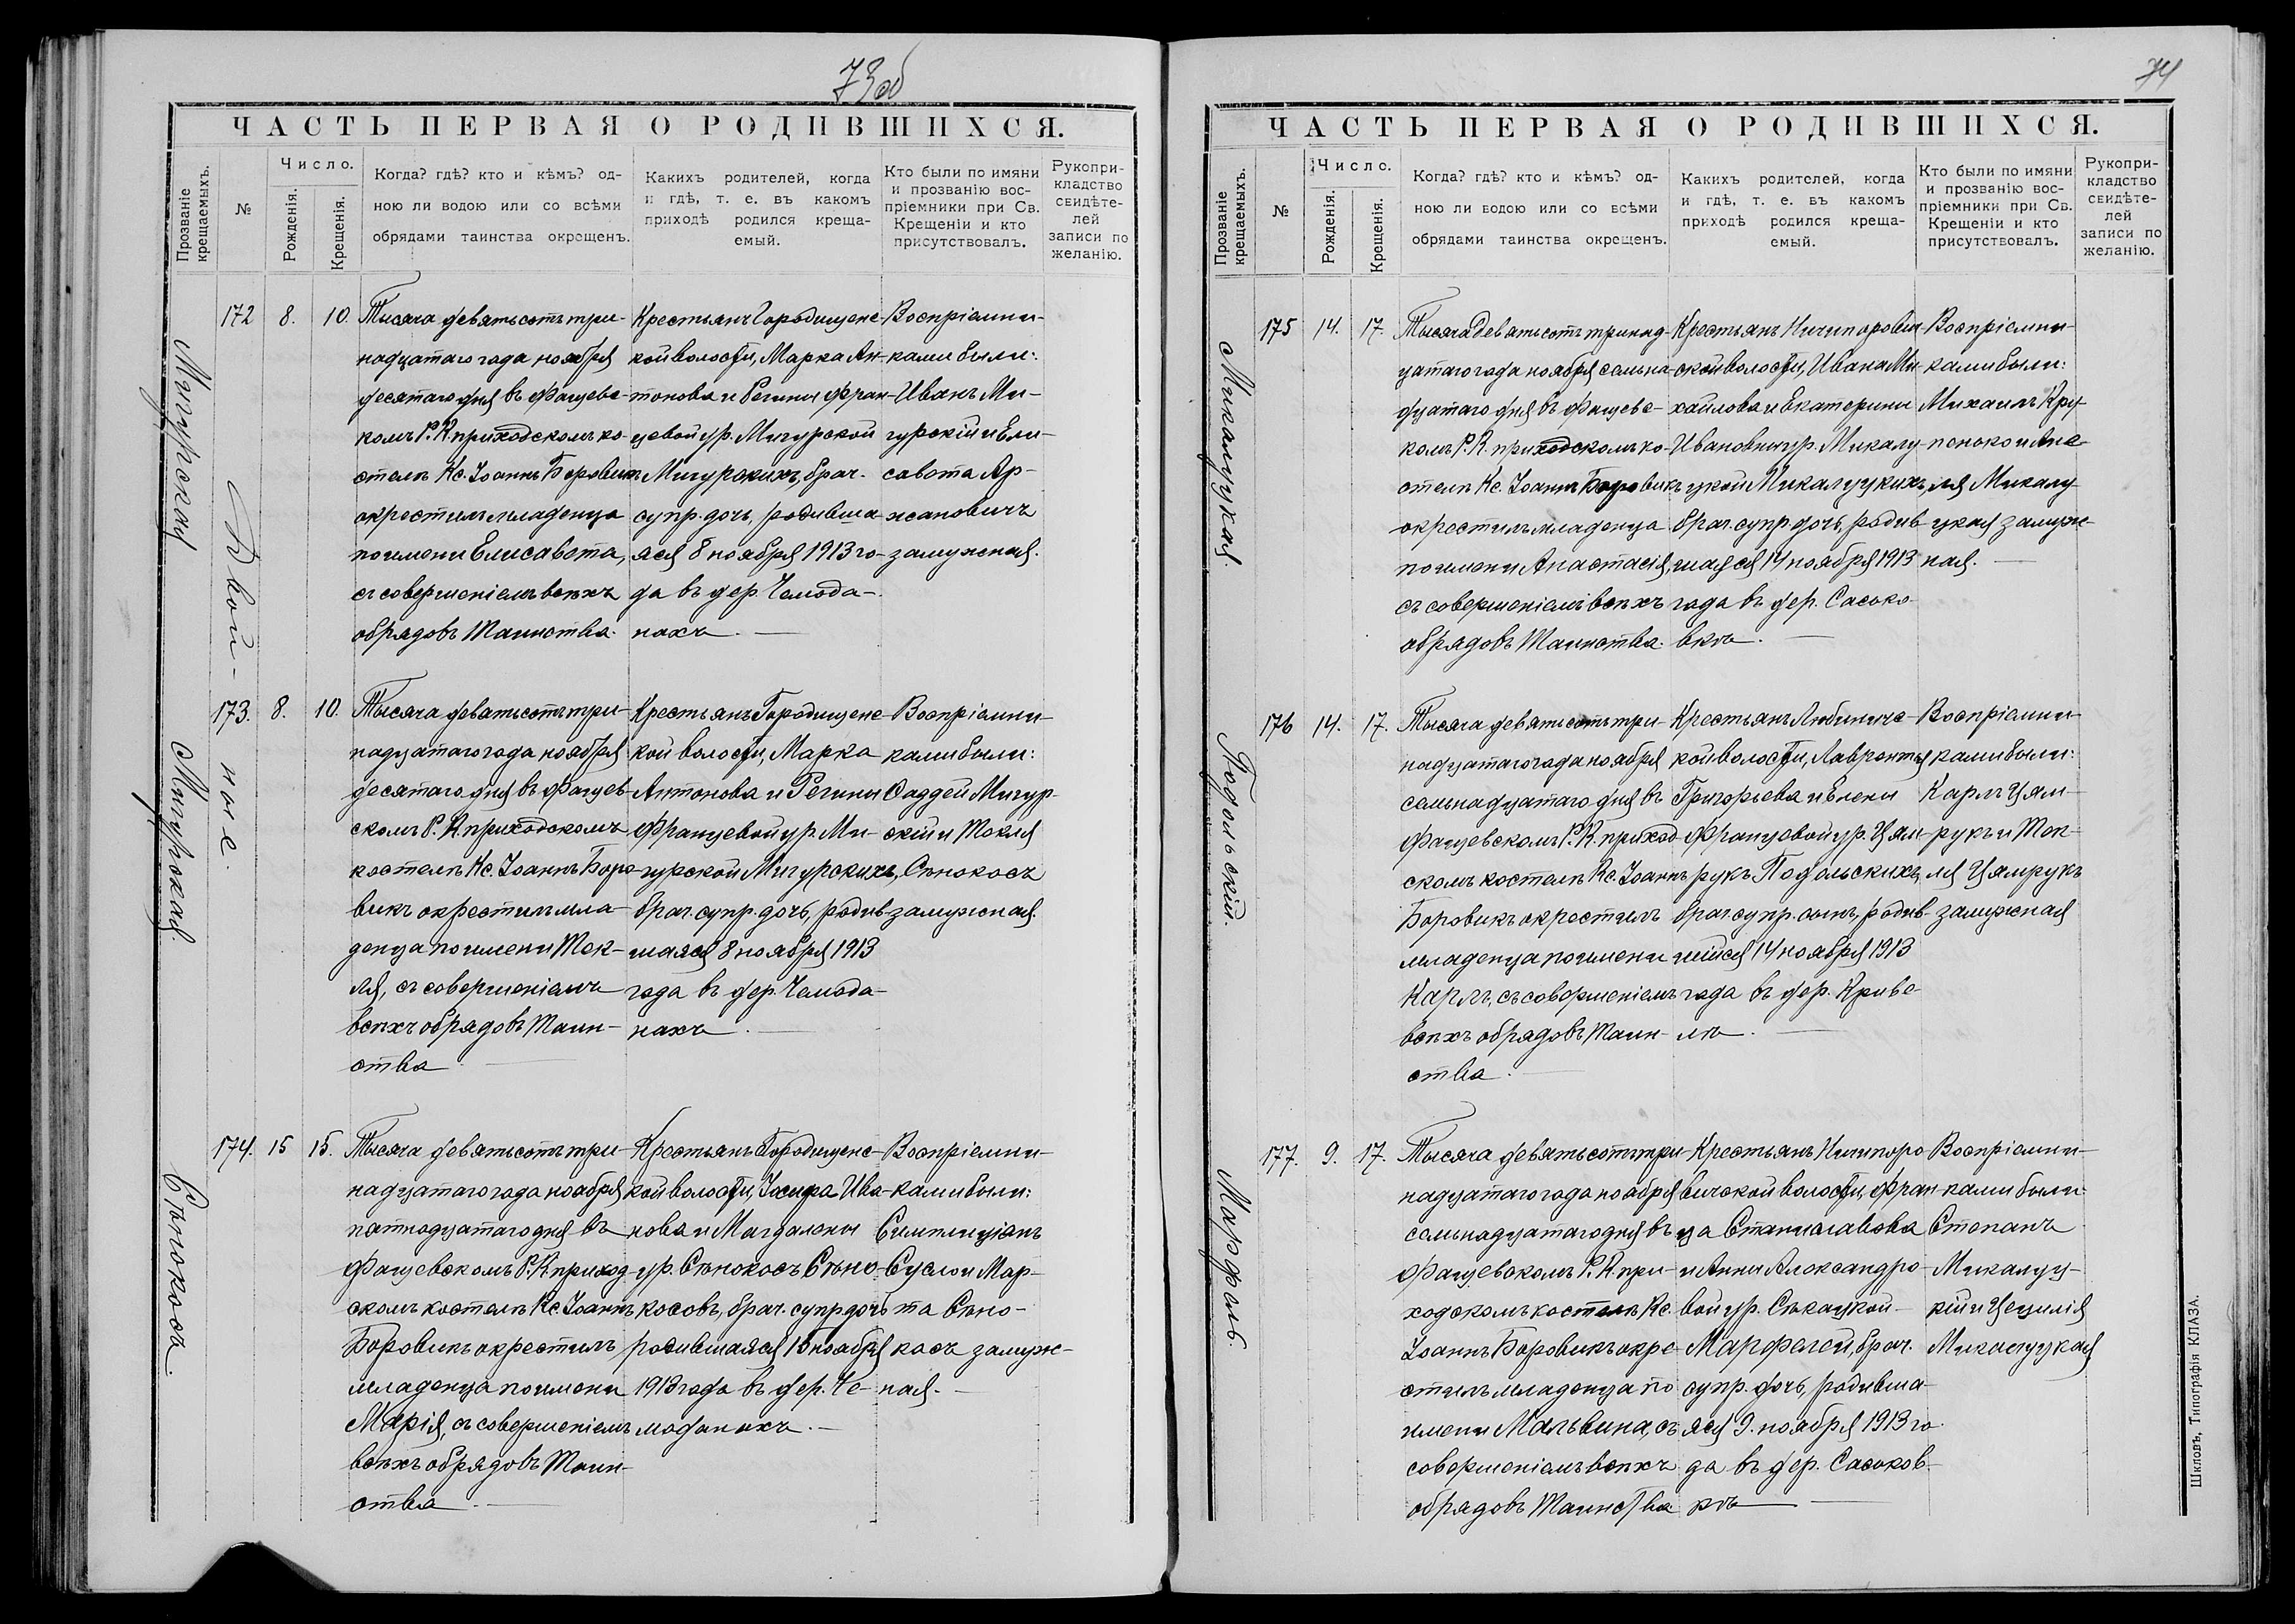 73об
ЧАСТЬ ПЕРВАЯ О РОДИВШИХСЯ.
Прозваніе крещаемыхъ.
№
Число.
Рожденія.
Крещенія.
Когда? гдѣ? кто и кѣмъ? од-
ною ли водою или со всѣми
обрядами таинства окрещенъ.
Какихъ родителей, когда
и гдѣ, т. е. въ какомъ
приходѣ родился креща-
емый.
Кто были по имяни
и прозванію вос-
пріемники при Св.
Крещеніи и кто
присутствовалъ.
Рукопри-
кладство
свидѣте-
лей
записи по
желанію.
Мигурская
Двой-
ные.
172
8.
10.
Тысяча девятьсотъ три-
надцатаго года ноября
десятаго дня въ Фащевс-
комъ Р. К. приходскомъ ко-
стелѣ Кс. Іоаннъ Боровикъ
окрестилъ младенца
по имени Елисавета,
съ совершеніемъ всѣхъ
обрядовъ Таинства.
Крестьянъ Городищенс-
кой волости, Марка Ан-
тонова и Регины Фран-
цевой ур. Мигурской
Мигурскихъ, брач.
супр. дочь, родивша-
яся 8 ноября 1913 го-
да въ дер. Чемода-
нахъ.
Воспріемни-
ками были:
Иванъ Ми-
гурскій и Ели-
савета Ар-
жановичъ
замужная.
Мигурская.
173.
8.
10.
Тысяча девятьсотъ три-
надцатаго года ноября
десятаго дня въ Фащев-
скомъ Р. К. приходскомъ
костелѣ Кс. Іоаннъ Боро-
викъ окрестилъ мла-
денца по имени Тек-
ля, съ совершеніемъ
всѣхъ обрядовъ Таин-
ства
Крестьянъ Городищенс-
кой волости, Марка
Антонова и Регины
Францевой ур. Ми-
гурской Мигурскихъ,
брач. супр. дочь, родив-
шаяся 8 ноября 1913
года въ дер. Чемода-
нахъ.
Воспріемни-
ками были:
Фаддей Мигур-
скій и Текля
Сѣнокосъ
замужная.
Сѣнокосъ.
174.
15
15.
Тысяча девятьсотъ три-
надцатаго года ноября
пятнадцатаго дня въ
Фащевскомъ Р. К. приход-
скомъ костелѣ Кс. Іоаннъ
Боровикъ окрестилъ
младенца по имени
Марія, съ совершеніемъ
всѣхъ обрядовъ Таин-
ства.
Крестьянъ Городищенс-
кой волости, Іосифа Ива-
нова и Магдалены
ур. Сѣнокосъ Сѣно-
косовъ, брач. супр. дочь
родившаяся 15 ноября
1913 года въ дер. Че-
моданахъ.
Воспріемни-
ками были:
Симплиціанъ
Сусло и Мар-
та Сѣно-
косъ замуж-
ная.
74
ЧАСТЬ ПЕРВАЯ О РОДИВШИХСЯ.
Прозваніе крещаемыхъ.
№
Число.
Рожденія.
Крещенія.
Когда? гдѣ? кто и кѣмъ? од-
ною ли водою или со всѣми
обрядами таинства окрещенъ.
Какихъ родителей, когда
и гдѣ, т. е. въ какомъ
приходѣ родился креща-
емый.
Кто были по имяни
и прозванію вос-
пріемники при Св.
Крещеніи и кто
присутствовалъ.
Рукопри-
кладство
свидѣте-
лей
записи по
желанію.
Микалуцкая.
175
14.
17.
Тысяча девятьсотъ тринад-
цатаго года ноября семьна-
дцатаго дня въ Фащевс-
комъ Р. К. приходскомъ ко-
стелѣ Кс. Іоаннъ Боровикъ
окрестилъ младенца
по имени Анастасія,
съ совершеніемъ всѣхъ
обрядовъ Таинства.
Крестьянъ Ничипорович-
ской волости, Ивана Ми-
хайлова и Екатерины
Ивановны ур. Микалу-
цкой Микалуцкихъ,
брач. супр. дочь, родив-
шаяся 14 ноября 1913
года въ дер. Сасько-
вкѣ.
Воспріемни-
ками были:
Михаилъ Кру-
пенько и Ане-
ля Микалу-
цкая замуж-
ная.
Подольскій.
176
14.
17.
Тысяча девятьсотъ три-
надцатаго года ноября
семьнадцатаго дня въ
Фащевскомъ Р. К. приход-
скомъ костелѣ Кс. Іоаннъ
Боровикъ окрестилъ
младенца по имени
Карлъ, съ совершеніемъ
всѣхъ обрядовъ Таин-
ства.
Крестьянъ Любиничс-
кой волости, Лаврентія
Григорьева и Елены
Францовой ур. Цям-
рукъ Подольскихъ,
брач. супр. сынъ, родив-
шійся 14 ноября 1913
года въ дер. Криве-
лѣ.
Воспріемни-
ками были:
Карлъ Цям-
рукъ и Тек-
ля Цямрукъ
замужная
Марфель.
177.
9.
17.
Тысяча девятьсотъ три-
надцатаго года ноября
семьнадцатаго дня въ
Фащевскомъ Р. К. при-
ходскомъ костелѣ Кс.
Іоаннъ Боровикъ окре-
стилъ младенца по
имени Мальвина, съ
совершеніемъ всѣхъ
обрядовъ Таинства
Крестьянъ Ничипоро-
вичской волости, Фран-
ца Станиславова
и Анны Александро-
вой ур. Сѣкацкой
Марфелей, брач.
супр. дочь, родивша-
яся 9. ноября 1913 го-
да въ дер. Саськов-
кѣ
Воспріемни-
ками были:
Степанъ
Микалуц-
кій и Цецилія
Микалуцкая
Шкловъ, Типографія КЛАЗА.